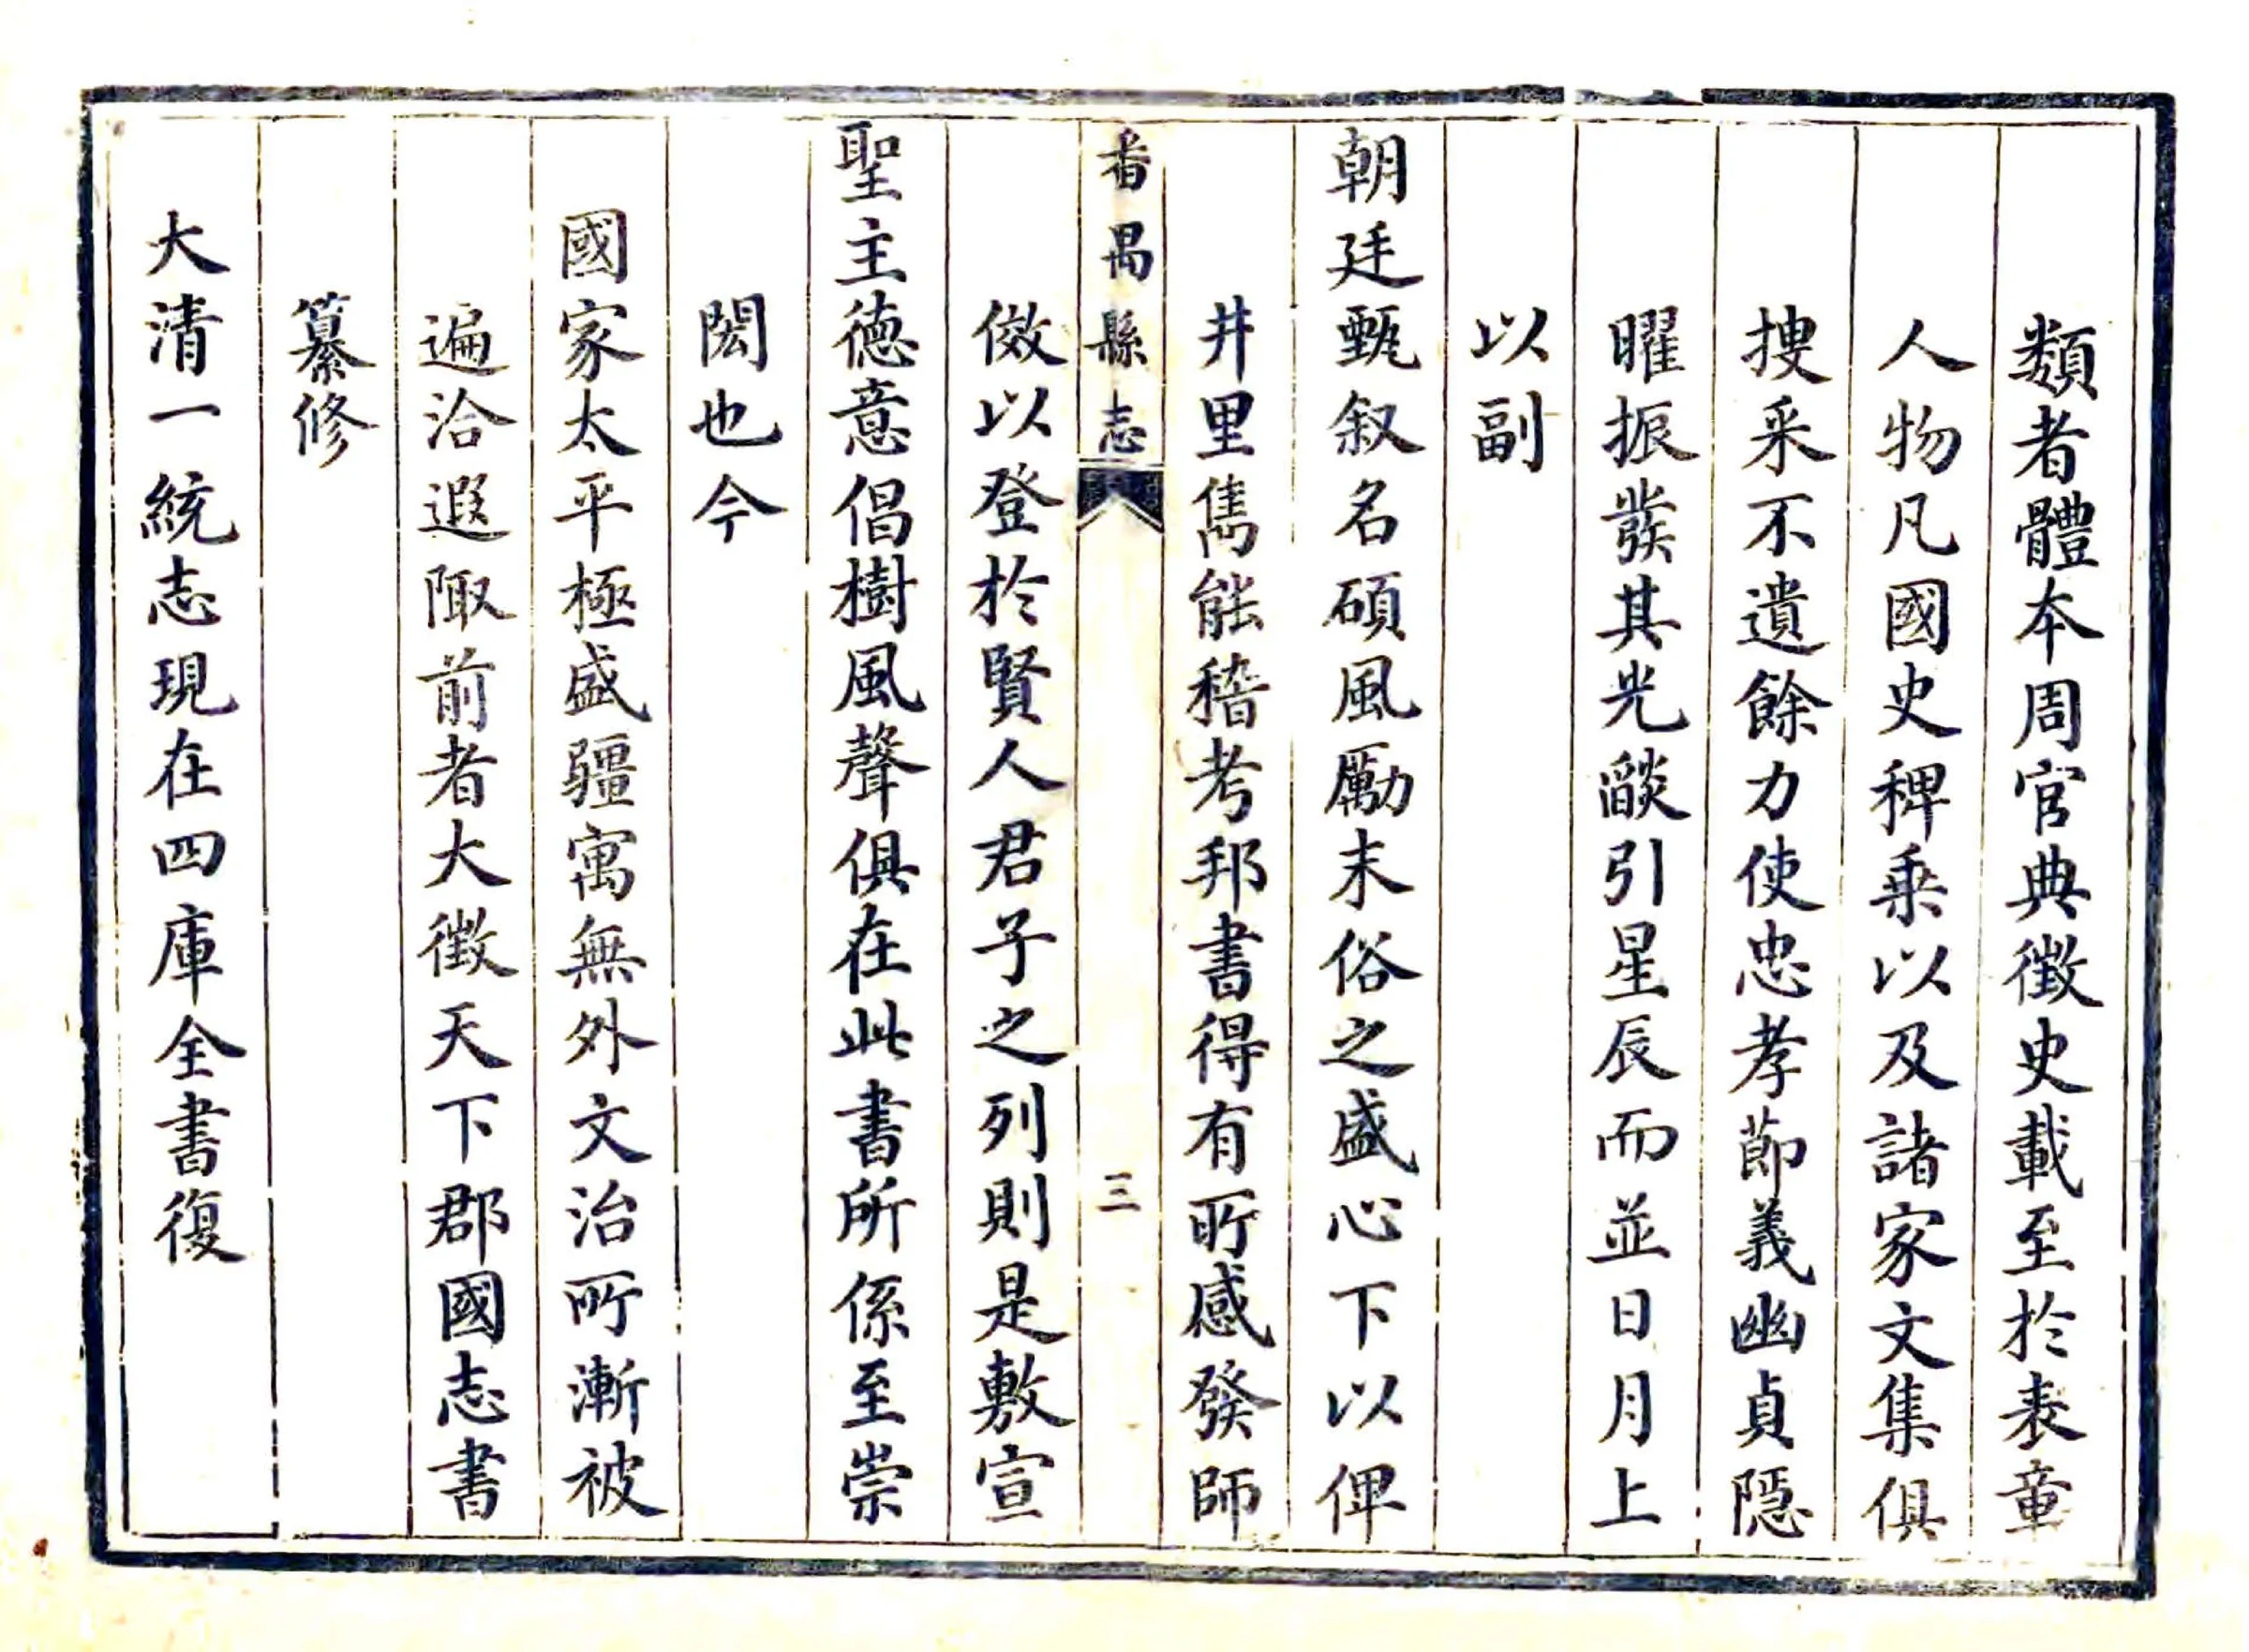 類者體本周官典徵史載至於表章
人物凡國史稗乗以及諸家文集俱
搜采不遺餘力使忠孝節義幽貞隱
曜振發其光燄引星辰而並日月上
以副
朝廷甄叙名碩風勵末俗之盛心下以俾
井里雋能稽考邦書得有所感發師
番禺縣志
三
傚以登於賢人君子之列則是敷宣
聖主德意倡樹風聲俱在此書所係至崇
閎也今
國家太平極盛疆寓無外文治所漸被
遍洽遐陬前者大徵天下郡國志書
纂修
大清一統志現在四庫全書復